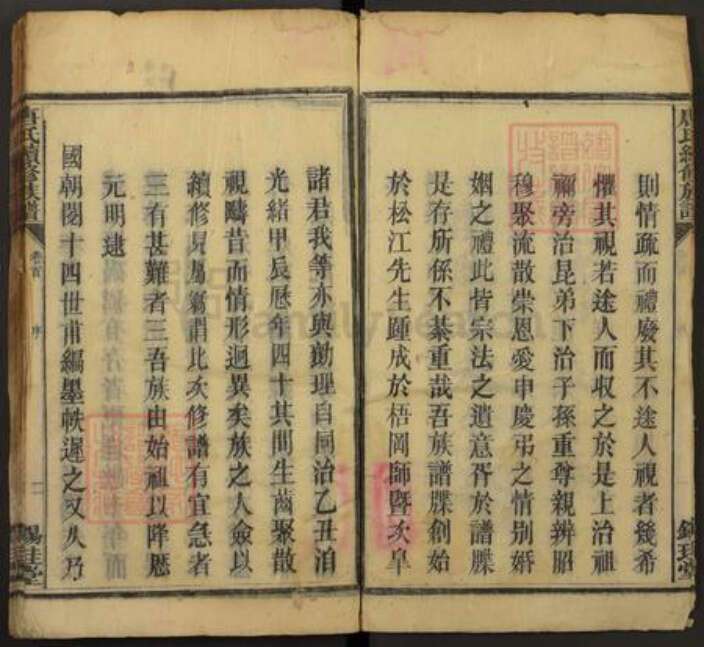 則情疏而禮廢其不途人視者幾希
懼其視若途人而收之於是上治祖
禰旁治昆弟下治子孫重尊親辨昭
穆聚流散崇恩愛申慶弔之情別婚
姻之禮此皆宗法之遺意胥於譜牒
是存所係不綦重哉吾族譜牒創始
於松江先生踵成於梧岡師暨次皋
諸君我等亦與勷理自同治乙丑洎
光緒甲辰歷年四十其間生齒聚散
視疇昔而情形迥異矣族之人僉以
續修見屬竊謂此次修譜有宜急者
三有甚難者三吾族由始祖以降歷
元明逮
國朝閱十四世甫編墨帙遲之又久乃
唐氏續修族譜
卷首
序
二
錫珪堂
唐氏續修族譜
錫珪堂